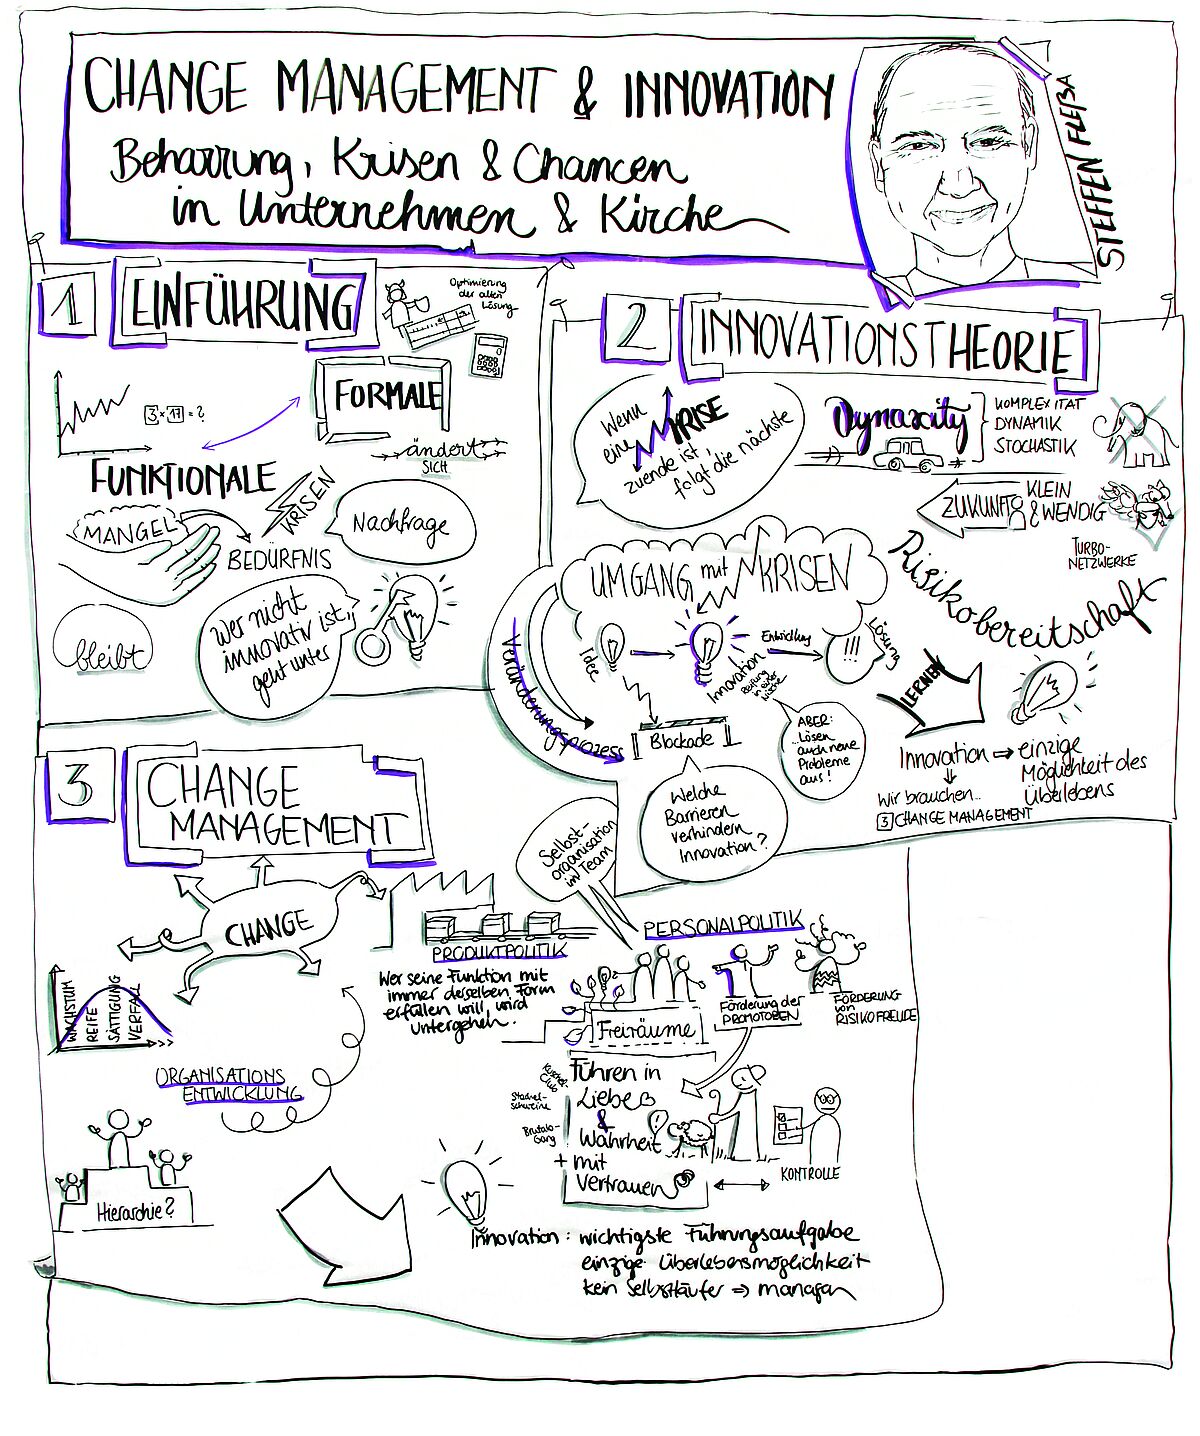 CHANGE MANAGEMENT & INNOVATION
Beharrung, Krisen & Chancen
in Unternehmen & Kirche
STEFFEN FLEßA
1 EINFÜHRUNG
Optimierung
der alten
Lösung
3 x 17 = ?
FORMALE
ändert
SICH
FUNKTIONALE
MANGEL
KRISEN
BEDÜRFNIS
Nachfrage
bleibt
Wer nicht
innovativ ist,
geht unter
2 INNOVATIONSTHEORIE
Wenn
eine KRISE
zuende ist,
folgt die nächste
Dynaxity
KOMPLEXITÄT
DYNAMIK
STOCHASTIK
ZUKUNFT
KLEIN
& WENDIG
TURBO-
NETZWERKE
Risikobereitschaft
UMGANG mit KRISEN
Veränderungsprozess
Idee
Innovation
Reifung
in einer
Nische
Entwicklung
!!!
Lösung
Blockade
ABER:
Lösen
auch neue
Probleme
aus!
Welche
Barrieren
verhindern
Innovation?
LERNEN
Innovation ⇒ einzige
Möglichkeit des
Überlebens
Wir brauchen..
3 CHANGE MANAGEMENT
3 CHANGE
MANAGEMENT
CHANGE
WACHSTUM
REIFE
SÄTTIGUNG
VERFALL
PRODUKTPOLITIK
Wer seine Funktion mit
immer derselben Form
erfüllen will, wird
untergehen.
Selbst-
organisation
im Team
PERSONALPOLITIK
Freiräume
Förderung der
PROMOTOREN
FÖRDERUNG
von
RISIKOFREUDE
ORGANISATIONS
ENTWICKLUNG
Hierarchie?
Kuschel-
Club
Stachel-
schweine
Brutalo-
Gang
Führen in
Liebe
&
Wahrheit
+ mit
Vertrauen
KONTROLLE
Innovation: wichtigste Führungsaufgabe
einzige Überlebensmöglichkeit
kein Selbstläufer ⇒ managen